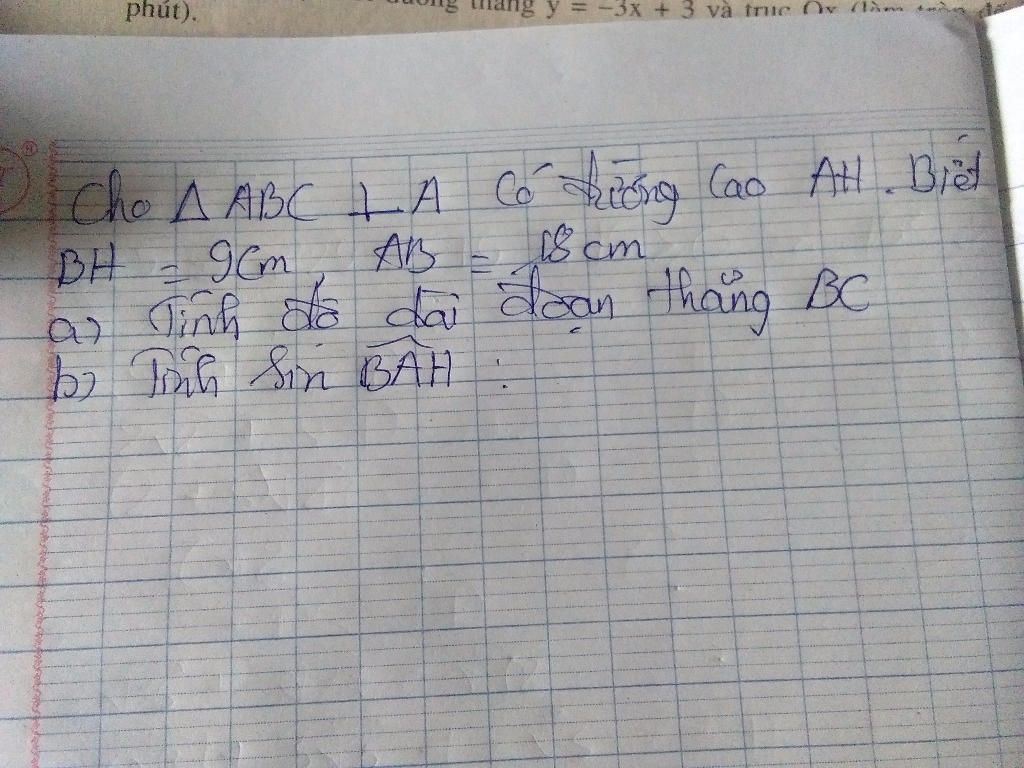 đường thẳng y = −3x + 3 và trục Ox (làm tròn đế
phút).
Cho Δ ABC ⊥ A Có đường Cao AH. Biết
BH = 9Cm, AB = 18 cm
a) Tính độ dài đoạn thẳng BC
b) Tính Sin BAH :